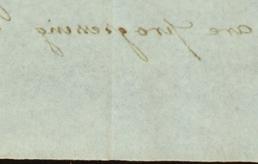 are progressing